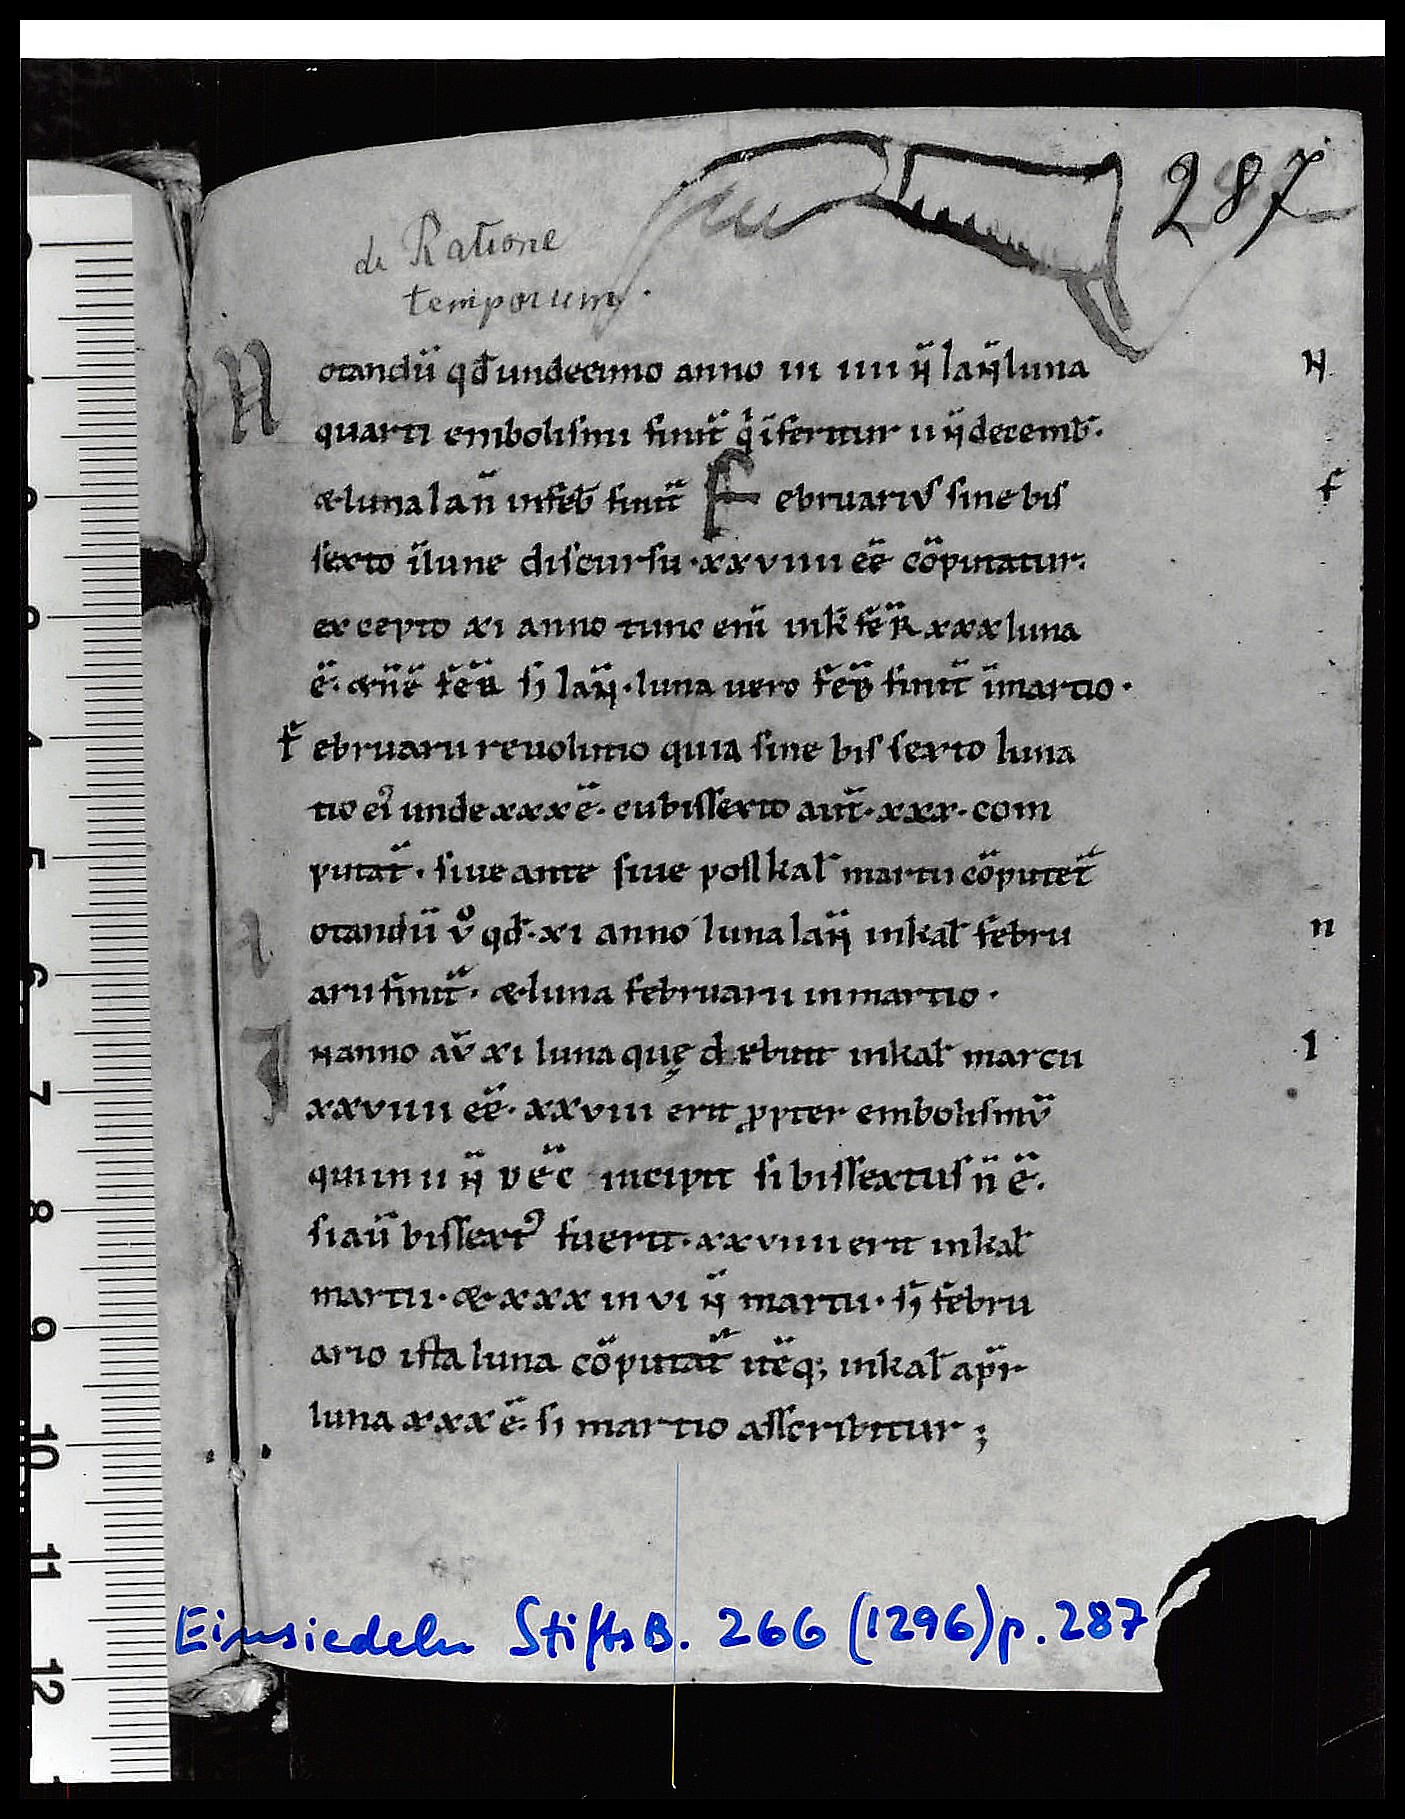 287
de Ratione
temporum.
Notandū qđ undecimo anno in iiii ɴ̄ iaɴ̄ luna
quarti embolismi finit̄ q̇ īseritur ii ɴ̄ decemb̄.
& luna ian̄ infeb̄ finit̄ Februariꝰ sine bis
sexto ī lune discursu · xxviiii eē cōputatur.
excepto xi anno tunc eni̅ ink̄ fēb̄R xxx luna
ē. & n̄ ē fēb̄ s; iaɴ̄ · luna uero fēb̄ finit̄ īmartio ·
Februarii reuolutio quia sine bis sexto luna
tio eiꝰ unde xxx ē. cubissexto aut̄ · xxx · com
putat̄ · siue ante siue post kal̄ martii cōputet̄
Notandū v̊ qđ · xi anno luna iaɴ̄ inkal̄ febru
arii finit̄ · & luna februarii inmartio ·
Inanno aū xi luna quę debuit inkal̄ marcii
xxviiii eē · xxviii erit ꝓpter embolismū
qui in ii ɴ̄ dēc incipit si bissextus n̄ ē.
siaū bissextꝰ fuerit · xxviiii erit inkal̄
martii · & · xxx in vi ɴ̄ martii · s; febru
ario ista luna cōputat̄ itēq; inkal̄ apr̄
luna xxx ē. s; martio asscribitur ;
N
f
n
I
Einsiedeln StiftsB. 266 (1296) p. 287
1
2
3
4
5
6
7
8
9
10
11
12